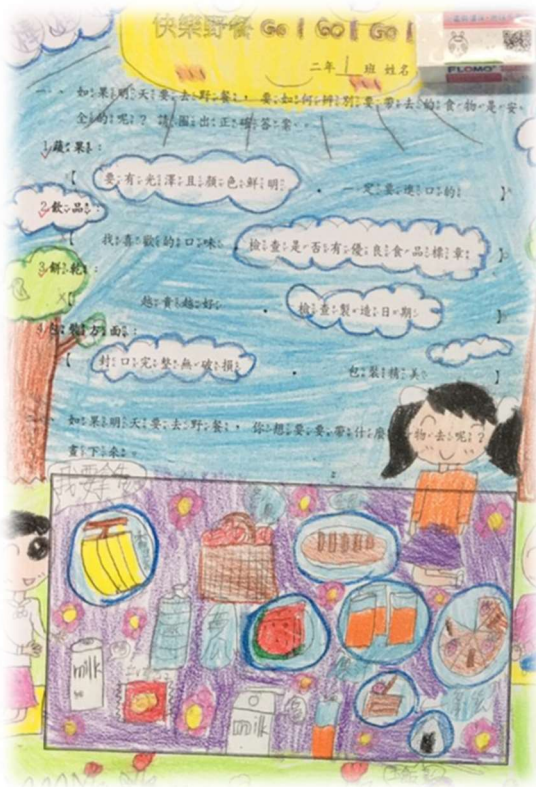 快樂野餐 Go! Go! Go!
二年 1 班 姓名
一、如果明天要去野餐,要如何辨別要帶去的食物是安
全的呢?請圈出正確答案。
1.蘋果:
【 要有光澤且顏色鮮明 . 一定要進口的 】
2.飲品:
【 找喜歡的口味 . 檢查是否有優良食品標章 】
3.餅乾:
【 越貴越好 . 檢查製造日期 】
4.包裝方面:
【 封口完整無破損 . 包裝精美 】
如果明天要去野餐,你想要要帶什麼 物去呢?
畫下來。
milk
milk
FLOMO